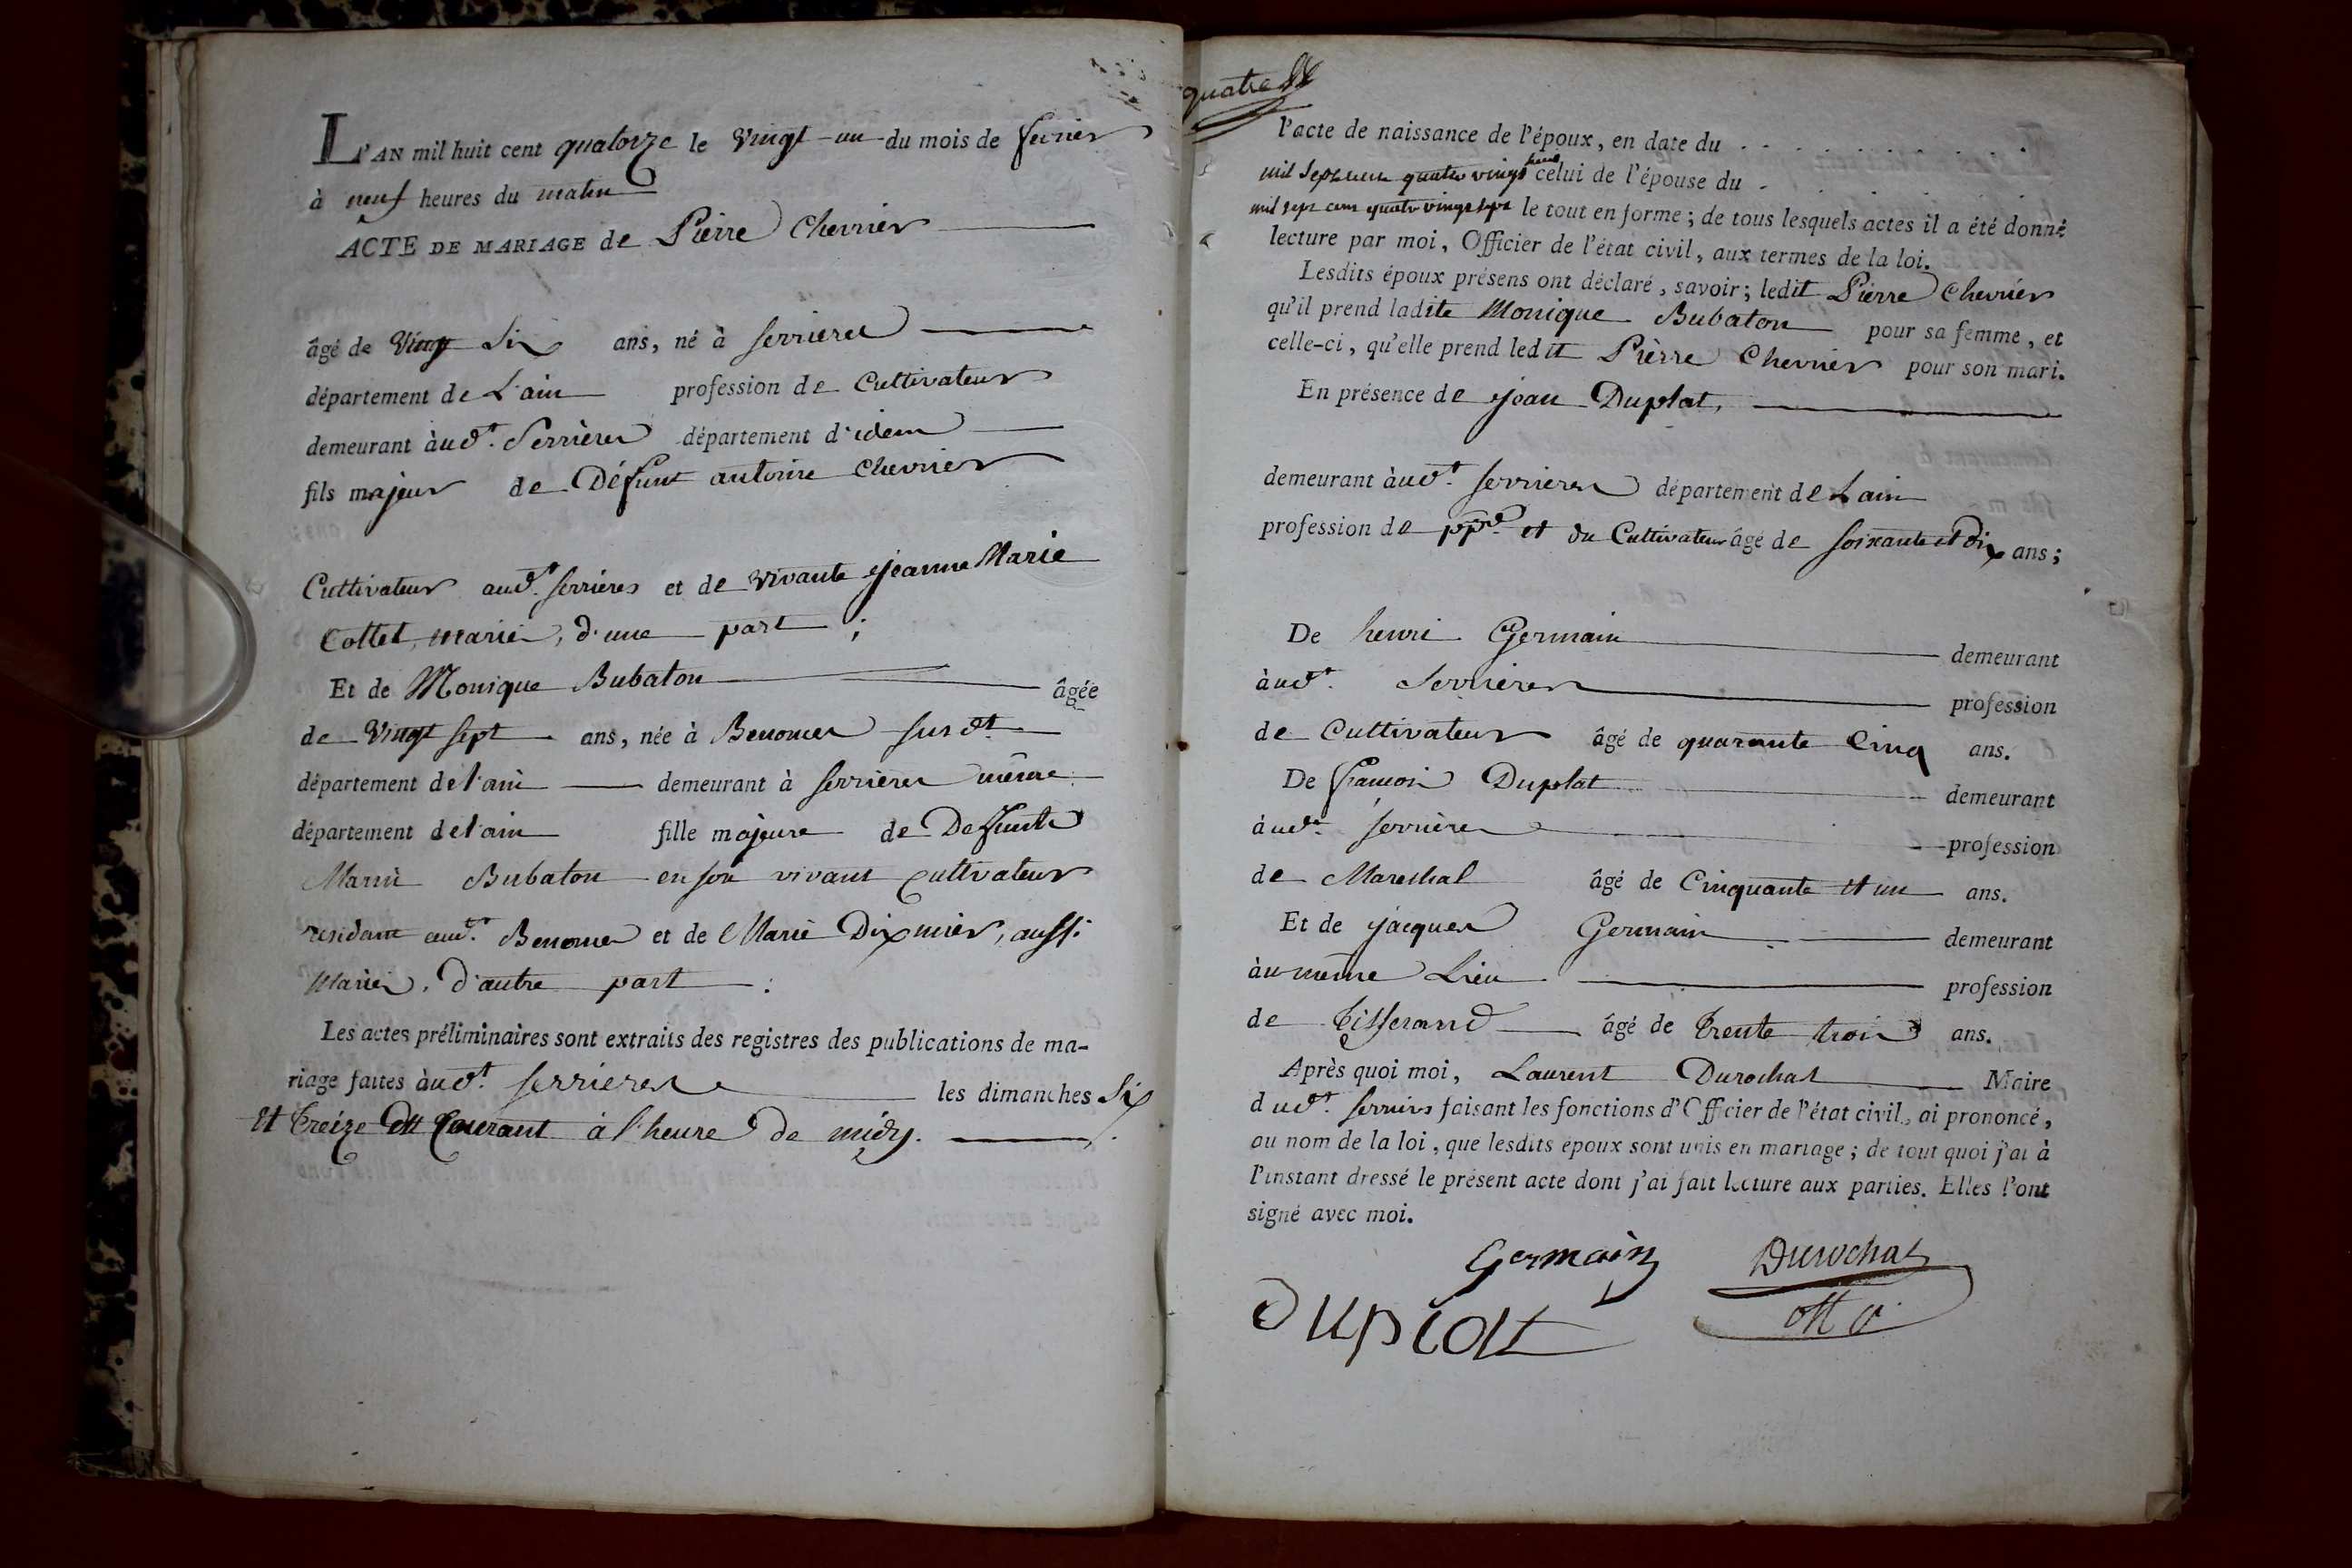 L'AN mil huit cent quatorze le vingt-un du mois de fevrier
à neuf heures du matin
ACTE DE MARIAGE de Pierre Chevrier
âgé de vingt six ans, né à Serrieres
département de L'ain profession de Cultivateur
demeurant àudt. Serrières département d'idem
fils majeur de Défunt antoine Chevrier
Cultivateur audt. Serrières et de vivante jeanne Marie
Collet, mariés, d'une part ;
Et de Monique Bubaton âgée
de vingt sept ans, née à Benonces susdt.
département de l'ain demeurant à Serrières même
département de l'ain fille majeure de Defunt
Marin Bubaton en son vivant cultivateur
résidant audt. Benonces et de Marie Dixmier, aussi
Mariés, d'autre part :
Les actes préliminaires sont extraits des registres des publications de ma-
riage faites àudt. Serrieres les dimanches Six
et treize du Courant à l'heure de midy.
quatre
l'acte de naissance de l'époux, en date du
mil sept cent quatre vingt celui de l'épouse du
mil sept cent quatre vingt sept le tout en forme ; de tous lesquels actes il a été donné
lecture par moi, Officier de l'état civil, aux termes de la loi.
Lesdits époux présens ont déclaré, savoir ; ledit Pierre Chevrier
qu'il prend ladite Monique Bubaton pour sa femme, et
celle-ci, qu'elle prend ledit Pièrre Chevrier pour son mari.
En présence de jean Duplat,
demeurant àudt. Serrieres département de L'ain
profession de ppre. et de Cultivateur âgé de soixante et dix ans ;
De henri Germain demeurant
àudt. Serrières profession
de Cultivateur âgé de quarante Cinq ans.
De françois Duplat demeurant
àudt. Serrières profession
de Mareshal âgé de Cinquante et un ans.
Et de jacques Germain demeurant
àu même Lieu profession
de Tisserand âgé de Trente trois ans.
Après quoi moi, Laurent Durochat Maire
dudt. Serrieres faisant les fonctions d'Officier de l'état civil, ai prononcé,
au nom de la loi, que lesdits époux sont unis en mariage ; de tout quoi j'ai à
l'instant dressé le présent acte dont j'ai fait lecture aux parties. Elles l'ont
signé avec moi.
Germain Durochat
duplat